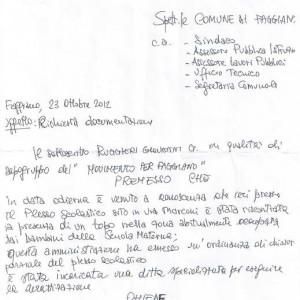 Spett.le COMUNE DI FAGGIAN.
c.a. - Sindaco
- Assessore Pubblica Istruz
- Assessore Lavori Pubblici
- Ufficio Tecnico
- Segretaria Comunale
Faggiano, 23 Ottobre 2012
oggetto: Richiesta documentazione
Il sottoscritto RUGGIERI GIOVANNI in qualità di
capogruppo del "MOVIMENTO PER FAGGIANO"
PREMESSO CHE
In data odierna è venuto a conoscenza che nei pressi
il Plesso scolastico sito in via Marconi è stata riscontrata
la presenza di un topo nella zona abitualmente occupata
dai bambini della Scuola Materna;
questa amministrazione ha emesso un'ordinanza di
del plesso scolastico
è stata incaricata una ditta specializzata per eseguire
la derattizzazione
CHIEDE